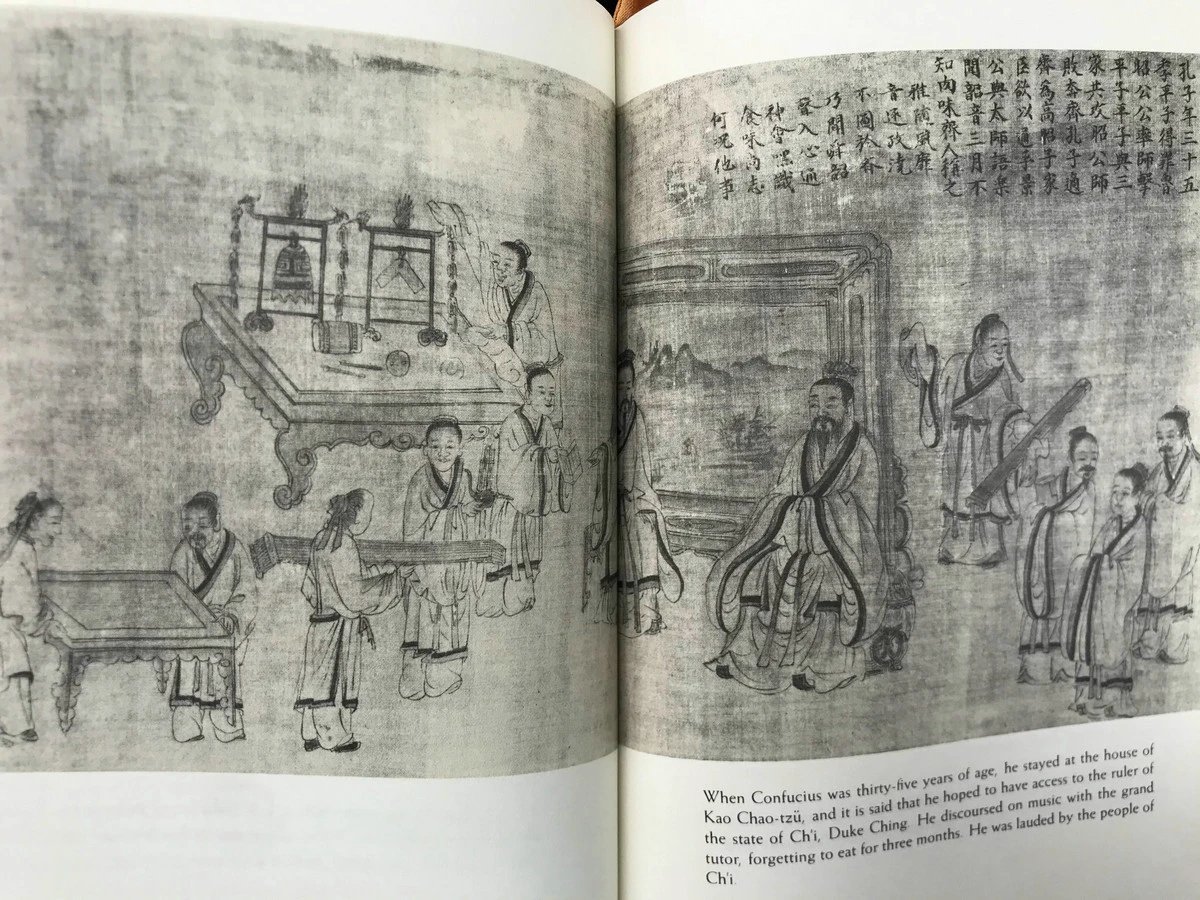 孔子年三十五
季平子得罪魯
昭公公率師擊
平子平子與三
家共攻昭公師
敗奔齊孔子適
齊為高昭子家
臣欲以通乎景
公與太師語樂
聞韶音三月不
知肉味齊人稱之
雅頌風靡
音政
不圖於齊
乃聞韶
聲入心通
神會默識
食味尚忘
何況他事
When Confucius was thirty-five years of age, he stayed at the house of
Kao Chao-tzü, and it is said that he hoped to have access to the ruler of
the state of Ch'i, Duke Ching. He discoursed on music with the grand
tutor, forgetting to eat for three months. He was lauded by the people of
Ch'i.